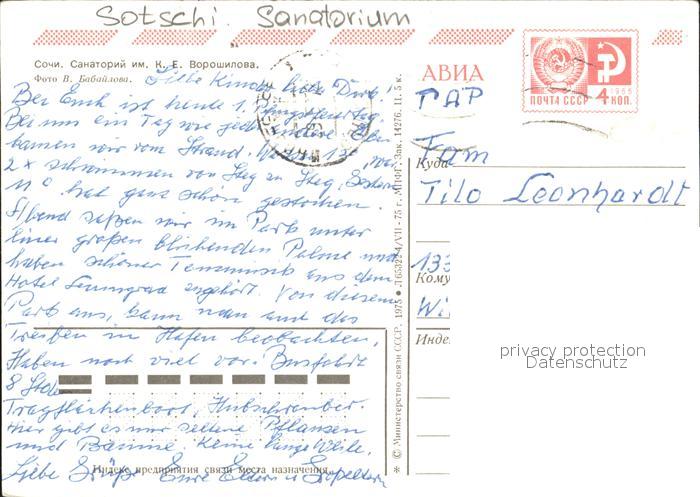 Sotschi. Sanatorium
Сочи. Санаторий им. К. Е. Ворошилова.
Фото В. Бабайлова.
Liebe Kinder, liebe
Bei Euch ist heute 1. Pfingstfeiertag.
Bei uns ein Tag wie jeder andere. Eben
kamen wir vom Strand. Wasser 13°, war
2x schwimmen von Steg zu Steg. Gestern
11° hat ganz schön gestochen.
Abend saßen wir im Park unter
einer großen blühenden Palme und
haben schöner Tanzmusik aus dem
Hotel Leningrad zugehört. Von diesem
Park aus, kann man auch das
Treiben im Hafen beobachten.
Haben noch viel vor. Busfahrt
8 Std
Tragflächenboot, Hubschrauber.
Hier gibt es nur seltene Pflanzen
und Bäume. Keine lange Weile.
Liebe Grüße Eure Eltern u.
Индекс предприятия связи места назначения
© Министерство связи СССР, 1975 • Л 65322-4/VII-75 г. МПФГ. Зак. 14276. Ц. 5 к.
АВИА
ПОЧТА СССР 4 КОП.
1966
ГДР
Куда
Fam
Tilo Leonhardt
133
Кому
Wi
Инде
privacy protection
Datenschutz